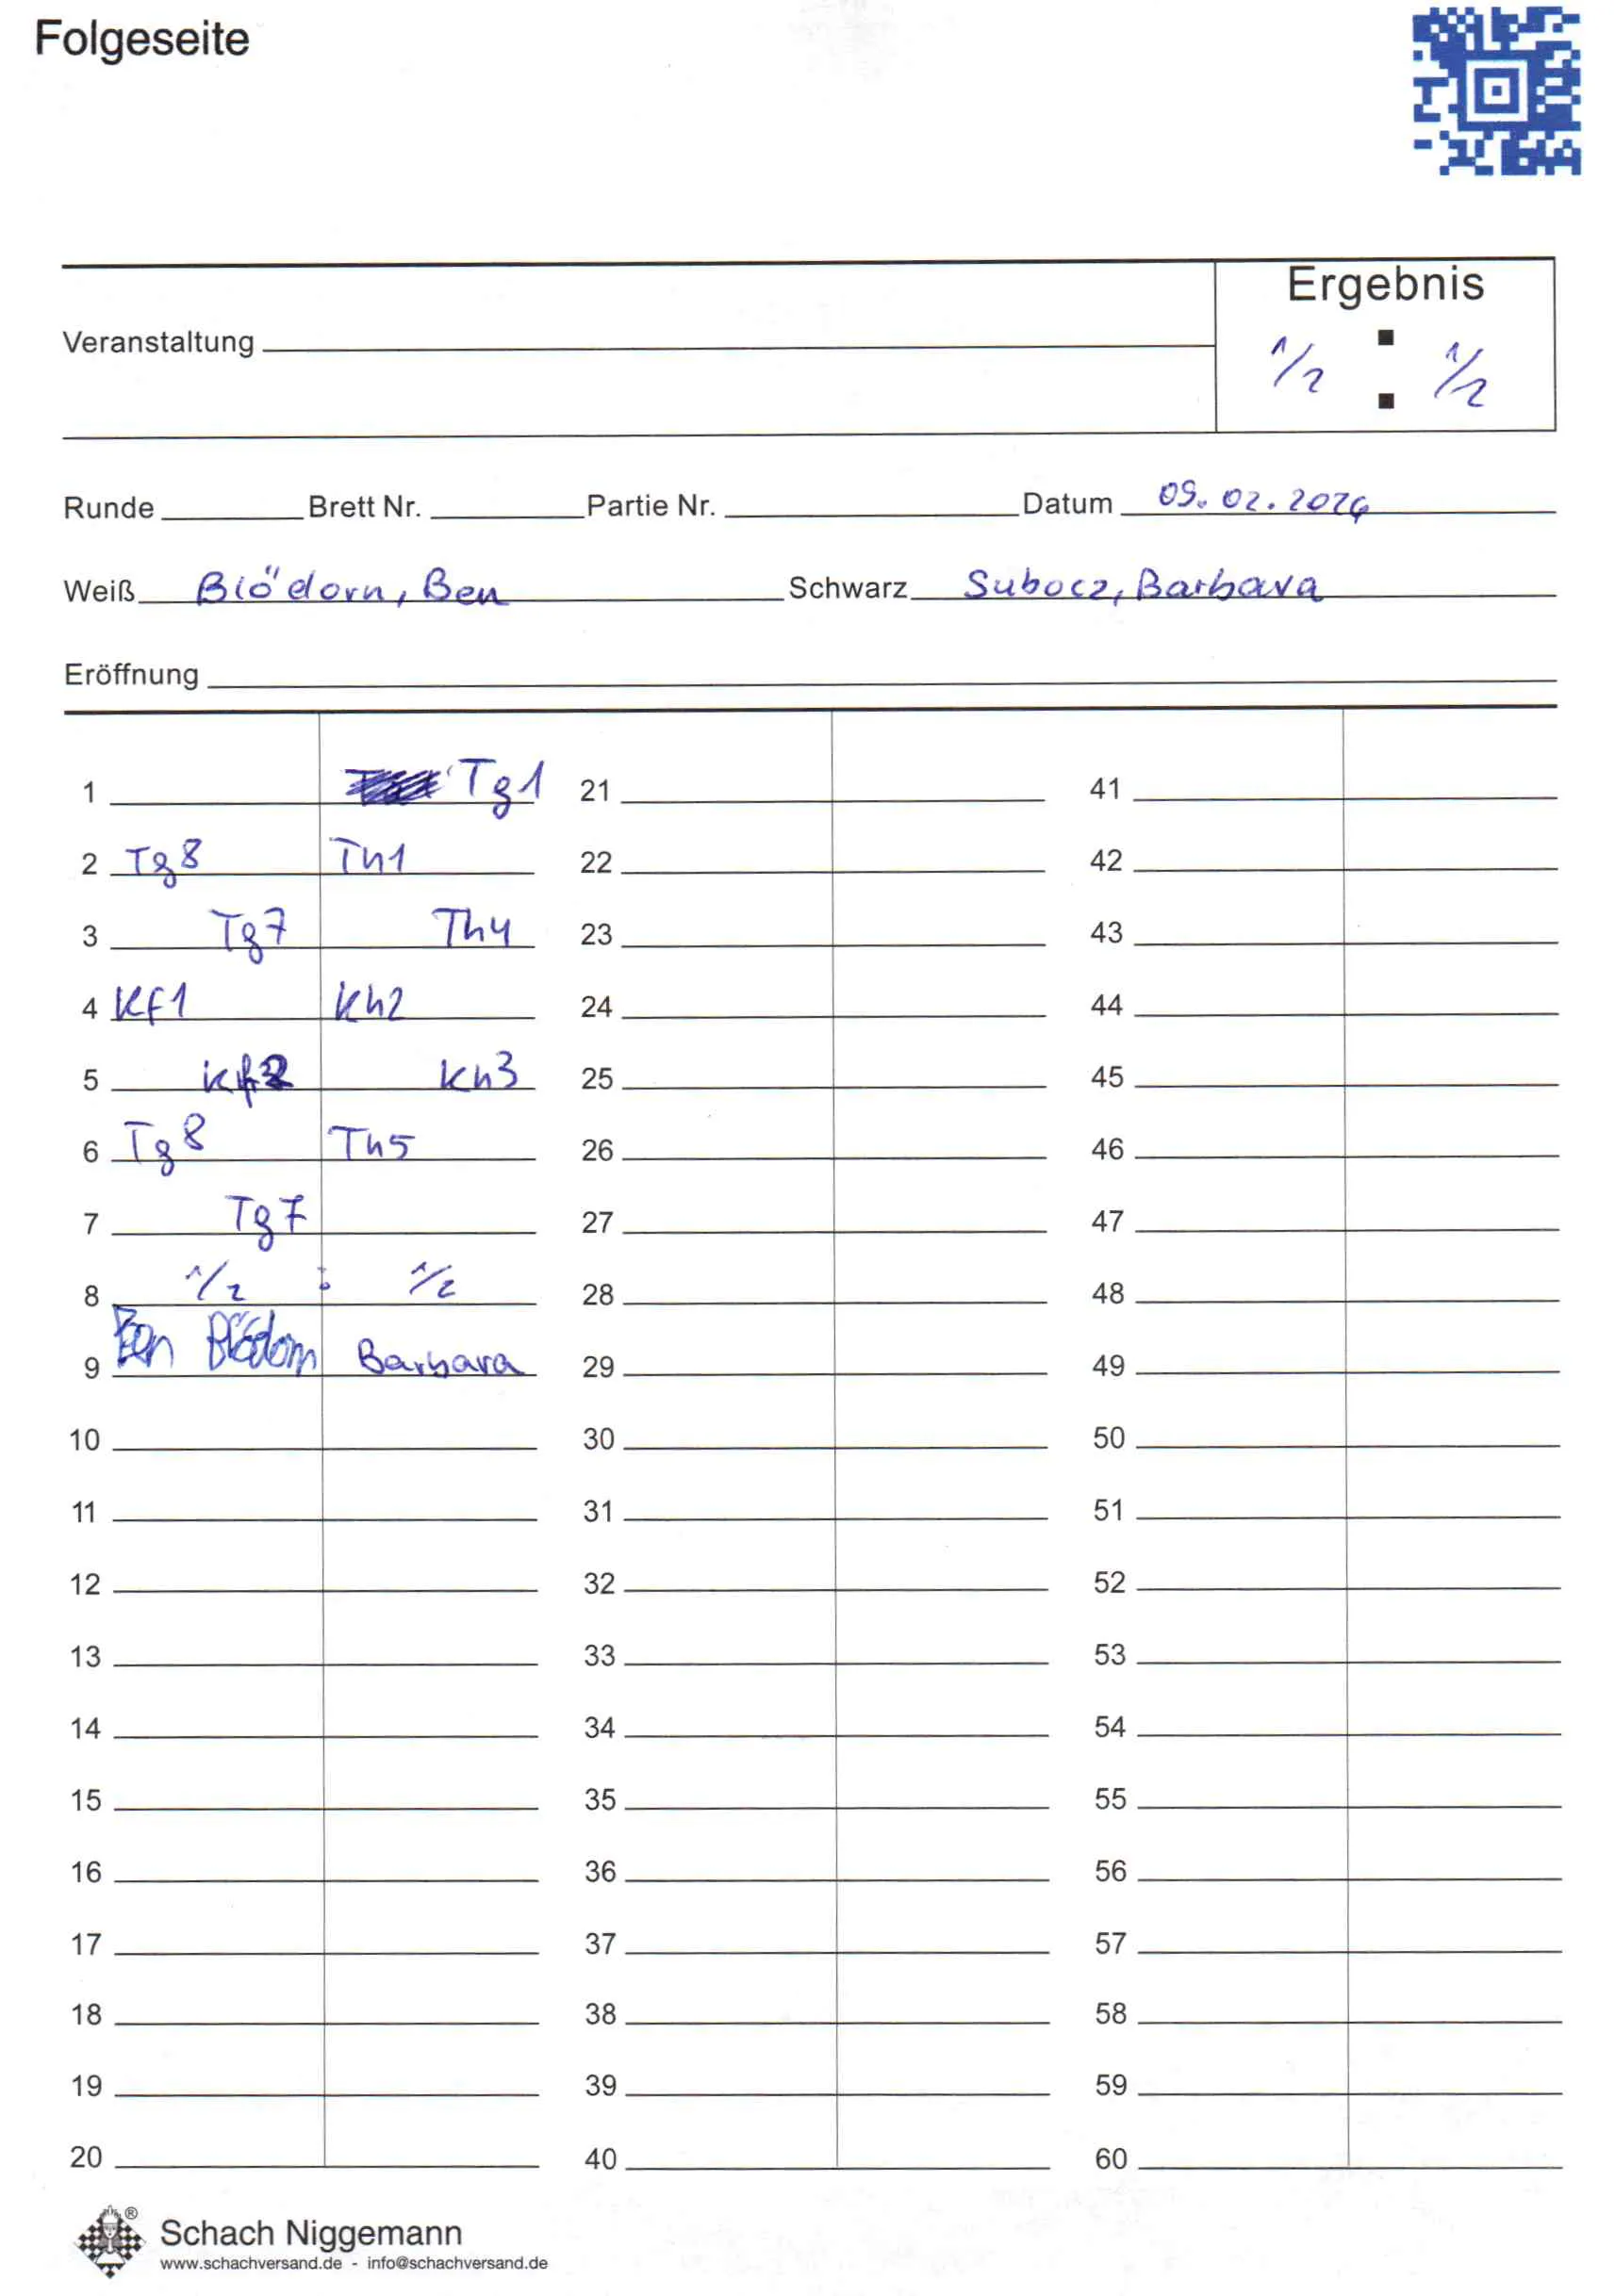 Folgeseite
Ergebnis
Veranstaltung
1/2 : 1/2
Runde Brett Nr. Partie Nr. Datum 09.02.2024
Weiß Blödorn, Ben Schwarz Subocz, Barbara
Eröffnung
1 Tg1 21 41
2 Tg8 Th1 22 42
3 Tg7 Th4 23 43
4 Kf1 Kh2 24 44
5 Kf2 Kh3 25 45
6 Tg8 Th5 26 46
7 Tg7 27 47
8 1/2 : 1/2 28 48
9 Ben Blödorn Barbara 29 49
10 30 50
11 31 51
12 32 52
13 33 53
14 34 54
15 35 55
16 36 56
17 37 57
18 38 58
19 39 59
20 40 60
® Schach Niggemann
www.schachversand.de - info@schachversand.de